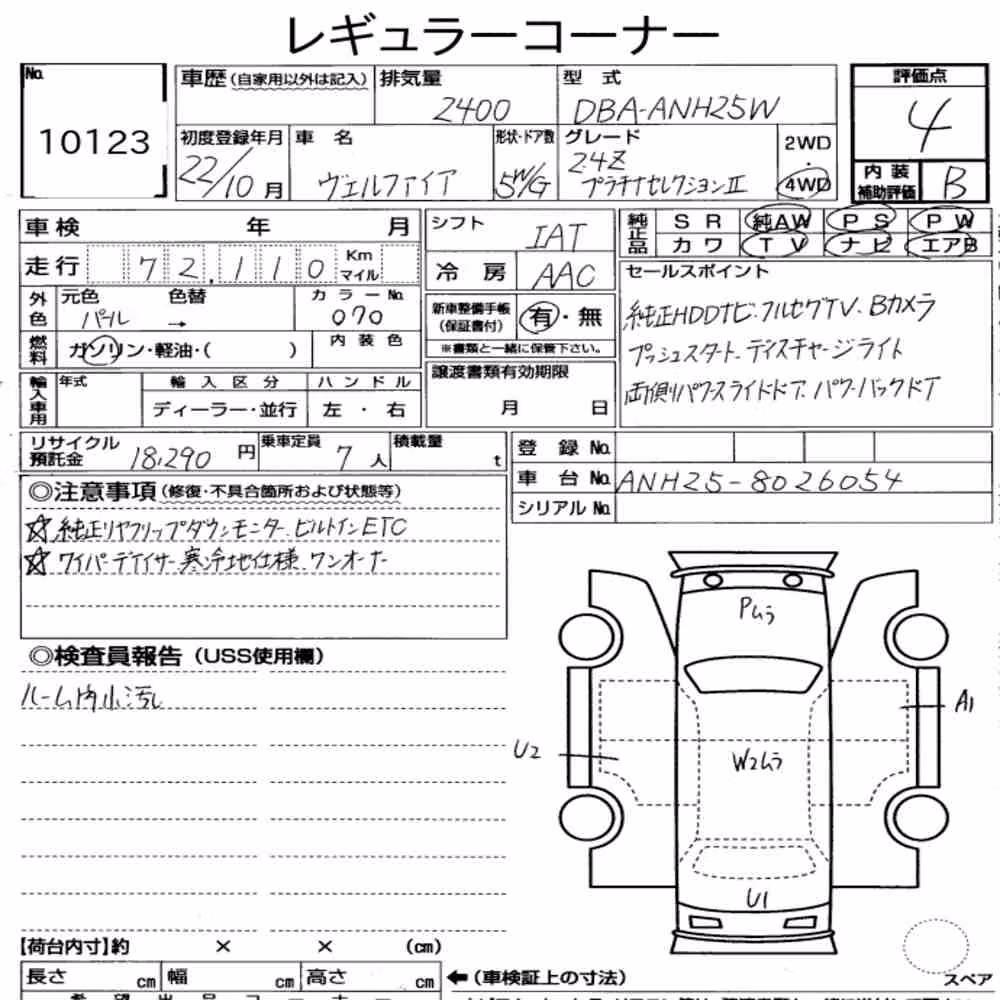 レギュラーコーナー
No.
10123
車歴(自家用以外は記入)
排気量
2400
型 式
DBA-ANH25W
評価点
4
初度登録年月
22/10月
車 名
ヴェルファイア
形状・ドア数
5W/G
グレード
2.4Z
プラチナセレクションⅡ
2WD
・
4WD
内装
補助評価
B
車検 年 月
シフト
IAT
純正品
SR 純AW PS PW
カワ TV ナビ エアB
走行 72,110 Km マイル
冷房
AAC
セールスポイント
純正HDDナビ・フルセグTV・Bカメラ
プッシュスタート・ディスチャージライト
両側パワースライドドア・パワーバックドア
外色
元色 色替
パール →
カラーNo.
070
新車整備手帳
(保証書付)
有・無
※書類と一緒に保管下さい。
燃料
ガソリン・軽油・( )
内装色
輸入車用
年式
輸入区分
ハンドル
ディーラー・並行
左・右
譲渡書類有効期限
月 日
リサイクル
預託金
18,290 円
乗車定員
7人
積載量
t
登録No.
車台No. ANH25-8026054
シリアルNo.
◎注意事項(修復・不具合箇所および状態等)
☆純正リヤフリップダウンモニター、ビルトインETC
☆ワイパーデアイサー 寒冷地仕様、ワンオーナー
◎検査員報告(USS使用欄)
ルーム内小汚れ
Pムラ
A1
U2
W2ムラ
U1
【荷台内寸】約 × × (cm)
長さ cm 幅 cm 高さ cm
←(車検証上の寸法)
スペア